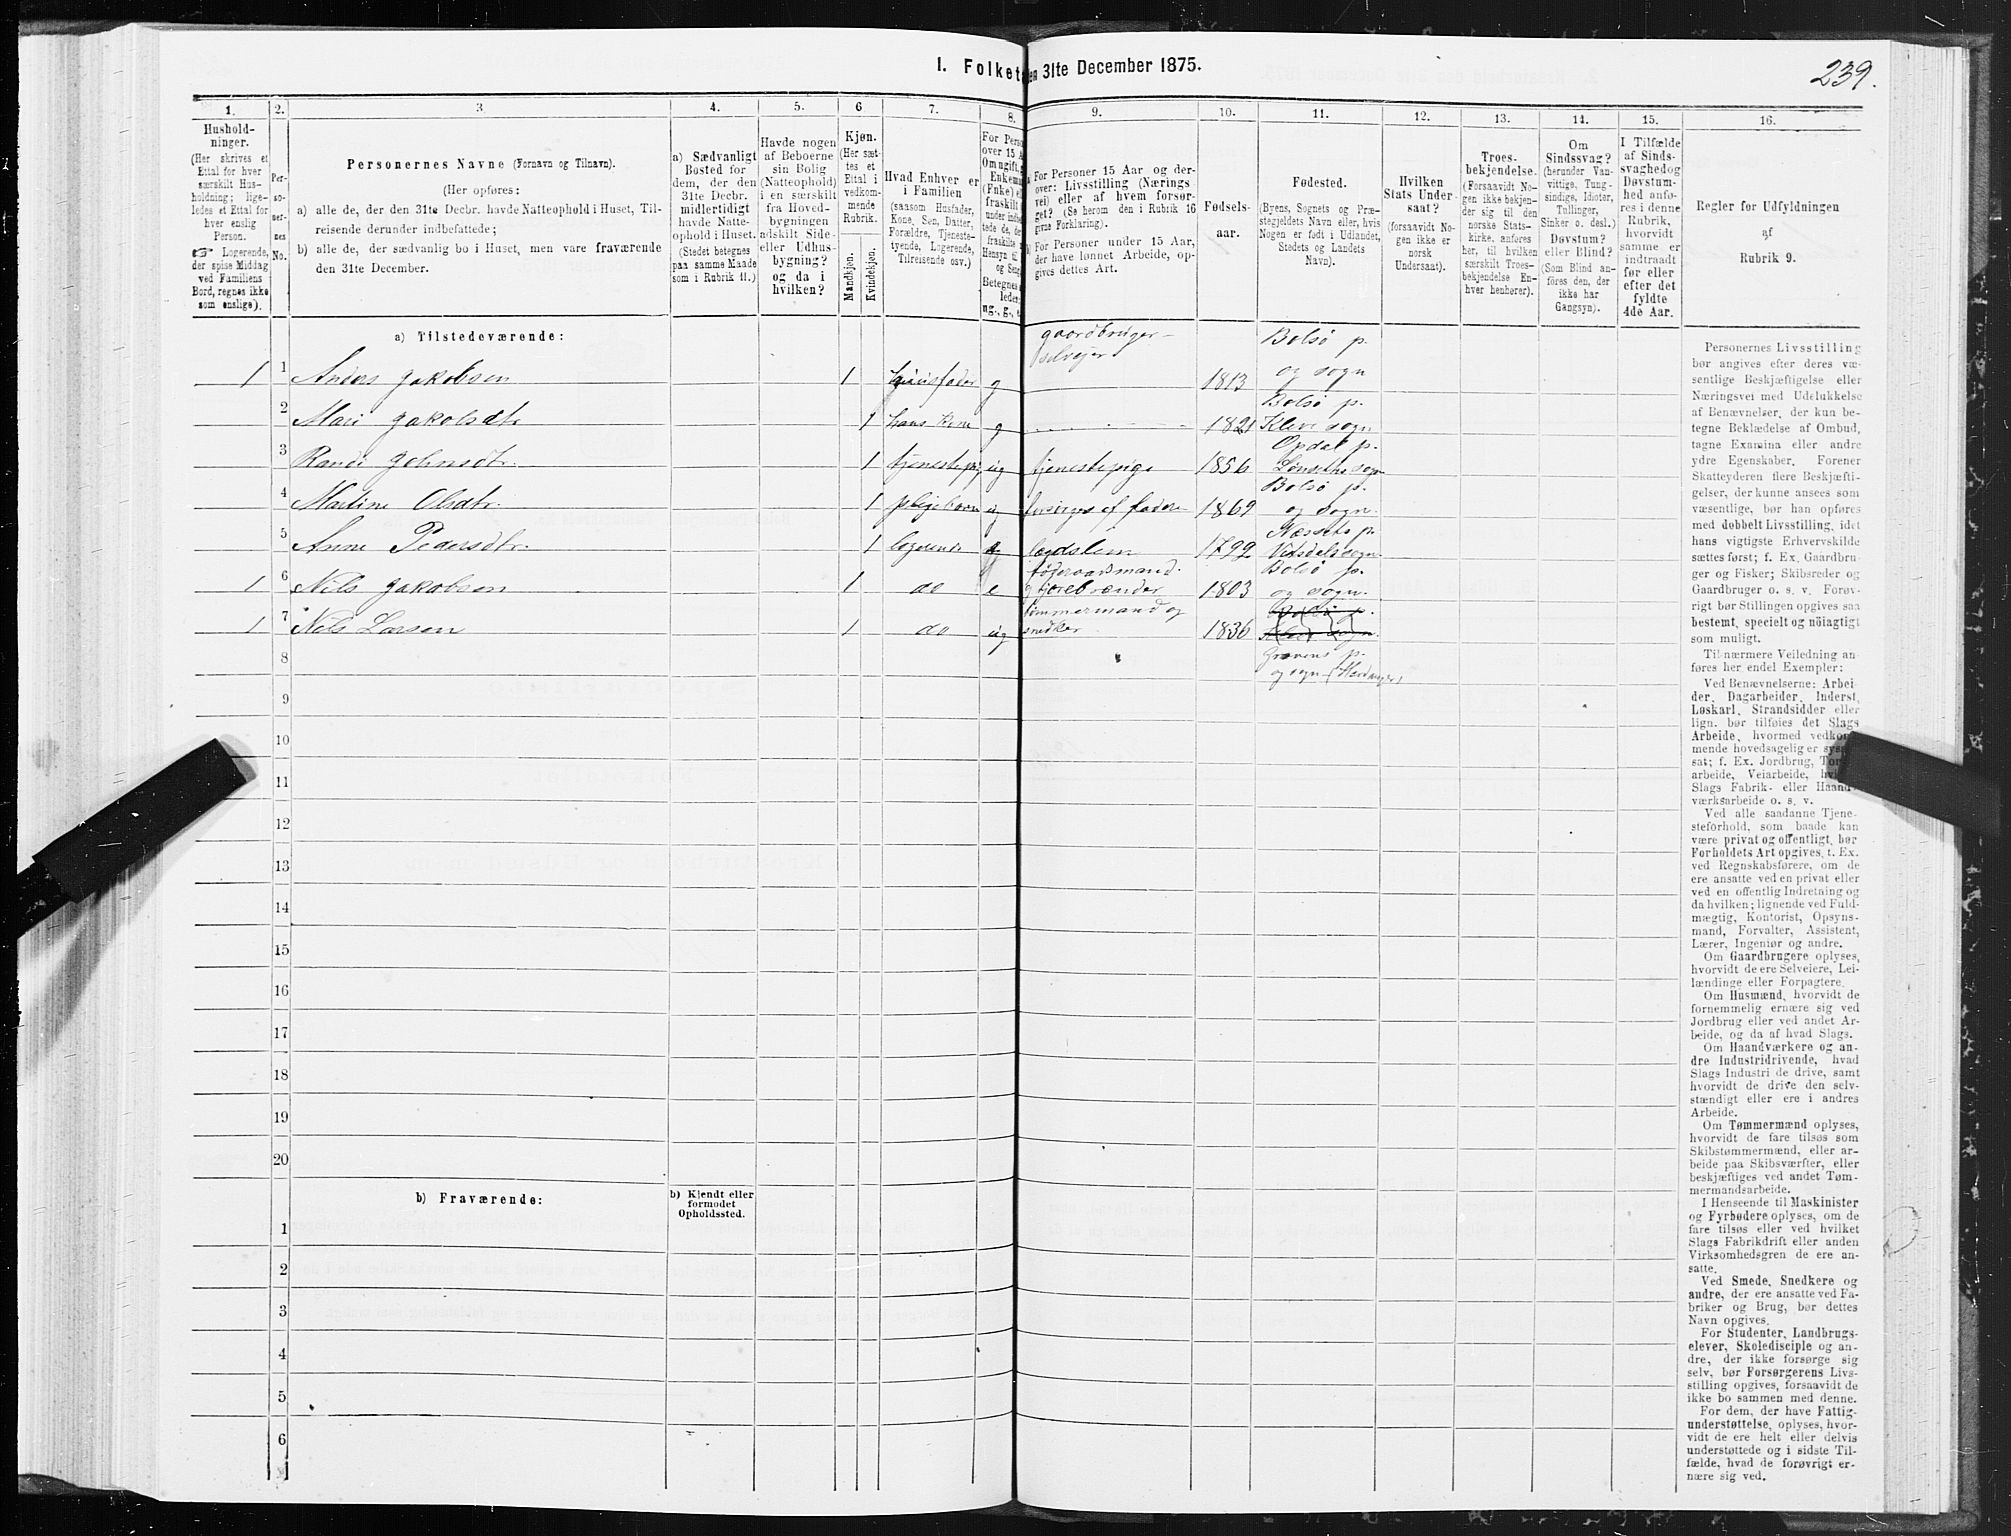 I. Folket
en 31te December 1875.
239.
1.
2.
3
4.
5.
6
7.
8.
9.
10.
11.
12.
13.
14.
15.
16.
Hushold-
ninger.
(Her skrives et
Ettal for hver
særskilt Hus-
holdning; lige-
ledes et Ettal for
hver enslig
Person.
☞ Logerende,
der spise Middag
ved Familiens
Bord, regnes ikke
som enslige).
Per-
so-
ner-
nes
No.
Personernes Navne (Fornavn og Tilnavn).
(Her opføres:
a) alle de, der den 31te Decbr. havde Natteophold i Huset, Til-
reisende derunder indbefattede;
b) alle de, der sædvanlig bo i Huset, men vare fraværende
den 31te December.
a) Sædvanligt
Bosted for
dem, der den
31te Decbr.
midlertidigt
havde Natte-
ophold i Huset.
(Stedet betegnes
paa samme Maade
som i Rubrik 11.)
Havde nogen
af Beboerne
sin Bolig
(Natteophold)
i en særskilt
fra Hoved-
bygningen
adskilt Side-
eller Udhus-
bygning?
og da i
hvilken?
Kjøn.
(Her sæt-
tes et
Ettal i
vedkom-
mende
Rubrik.
Mandkjøn.
Kvindekjøn.
Hvad Enhver er
i Familien
(saasom Husfader,
Kone, Søn, Datter,
Forældre, Tjeneste-
tyende, Logerende,
Tilreisende osv.)
For Pers
over 15 A
Om ugift,
Enkema
(Enke) e
fraskilt
For Personer 15 Aar og der-
over: Livsstilling (Nærings
vei) eller af hvem forsør-
get? (Se herom den i Rubrik 16
givne Forklaring).
For Personer under 15 Aar,
der have lønnet Arbeide, op-
gives dettes Art.
Fødsels-
aar.
Fødested.
(Byens, Sognets og Præ-
stegjeldets Navn eller, hvis
Nogen er født i Udlandet,
Stedets og Landets
Navn).
Hvilken
Stats Under-
saat?
(forsaavidt No-
gen ikke er
norsk
Undersaat).
Troes-
bekjendelse.
(Forsaavidt No-
gen ikke bekjen-
der sig til den
norske Stats-
kirke, anføres
her, til hvilken
særskilt Troes-
bekjendelse En-
hver henhører).
Om
Sindssvag?
(herunder Van-
vittige, Tung-
sindige, Idioter,
Tullinger,
Sinker o. desl.)
Døvstum?
eller Blind?
(Som Blind an-
føres den, der
ikke har
Gangsyn).
I Tilfælde
af Sinds-
svaghed og
Døvstum-
hed anfø-
res i denne
Rubrik,
hvorvidt
samme er
indtraadt
før eller
efter det
fyldte
4de Aar.
Regler for Udfyldningen
af
Rubrik 9.
a) Tilstedeværende:
1 1 Anders Jakobsen 1 husfader g gaardbruger selvejer 1813 Bolsø p. og sogn
2 Mari Jakobsdtr 1 hans Kone g 1821 Bolsø p. Kleve sogn
3 Randi Johnsdtr. 1 tjenestepige ug tjenestepige 1856 Opdal p. Lønsethe sogn
4 Martine Olsdtr. 1 plejebarn ug forsørges af fader 1869 Bolsø p. og sogn.
5 Anne Pedersdtr. 1 logerende lægdslem 1792 Næssets p. Vitsdals sogn
1 6 Nils Jakobsen 1 do e føderaadsmand og tjærebrænder 1803 Bolsø p. og sogn.
1 7 Nils Larsen 1 do ug tømmermand og snedker 1836 Bolsø p. Kleve sogn.
Gravens p.
og sogn (Hardanger)
8
9
10
11
12
13
14
15
16
17
18
19
20
b) Fraværende:
b) Kjendt eller
formodet
Opholdssted.
1
2
3
4
5
6
Personernes Livsstilling
bør angives efter deres væ-
sentlige Beskjæftigelse eller
Næringsvei med Udelukkelse
af Benævnelser, der kun be-
tegne Beklædelse af Ombud,
tagne Examina eller andre
ydre Egenskaber. Forener
Skatteyderen flere Beskjæfti-
gelser, der kunne ansees som
væsentlige, bør han opføres
med dobbelt Livsstilling, idet
hans vigtigste Erhvervskilde
sættes først; f. Ex. Gaardbru-
ger og Fisker; Skibsreder og
Gaardbruger o. s. v. Forøv-
rigt bør Stillingen opgives saa
bestemt, specielt og nöiagtigt
som muligt.
Til nærmere Veiledning an-
føres her endel Exempler:
Ved Benævnelserne: Arbei-
der, Dagarbeider, Inderst,
Løskarl, Strandsidder eller
lign. bør tilføies det Slags
Arbeide, hvormed vedkom-
mende hovedsagelig er syssel-
sat; f. Ex. Jordbrug, Torv-
arbeide, Veiarbeide, hvilket
Slags Fabrik- eller Haand-
værksarbeide o. s. v.
Ved alle saadanne Tjene-
steforhold, som baade kan
være privat og offentligt, bør
Forholdets Art opgives, t. Ex.
ved Regnskabsførere, om de
ere ansatte ved en privat eller
ved en offentlig Indretning og
da hvilken; lignende ved Fuld-
mægtig, Kontorist, Opsyns-
mand, Forvalter, Assistent,
Lærer, Ingeniør og andre.
Om Gaardbrugere oplyses,
hvorvidt de ere Selveiere, Lei-
lændinge eller Forpagtere.
Om Husmænd, hvorvidt de
fornemmelig ernære sig ved
Jordbrug eller ved andet Ar-
beide, og da af hvad Slags.
Om Haandværkere og an-
dre Industridrivende, hvad
Slags Industri de drive, samt
hvorvidt de drive den selv-
stændigt eller ere i andres
Arbeide.
Om Tømmermænd oplyses,
hvorvidt de fare tilsøs som
Skibstømmermænd, eller ar-
beide paa Skibsværfter, eller
beskjæftiges ved andet Tøm-
mermandsarbeide.
I Henseende til Maskinister
og Fyrbødere oplyses, om de
fare tilsøs eller ved hvilket
Slags Fabrikdrift eller anden
Virksomhedsgren de ere an-
satte.
Ved Smede, Snedkere og
andre, der ere ansatte ved Fa-
briker og Brug, bør dettes
Navn opgives.
For Studenter, Landbrugs-
elever, Skoledisciple og an-
dre, der ikke forsørge sig
selv, bør Forsørgerens Livs-
stilling opgives, forsaavidt de
ikke bo sammen med denne.
For dem, der have Fattig-
understøttelse, oplyses, hvor-
vidt de ere helt eller delvis
understøttede og i sidste Til-
fælde, hvad de forøvrigt er-
nære sig ved.